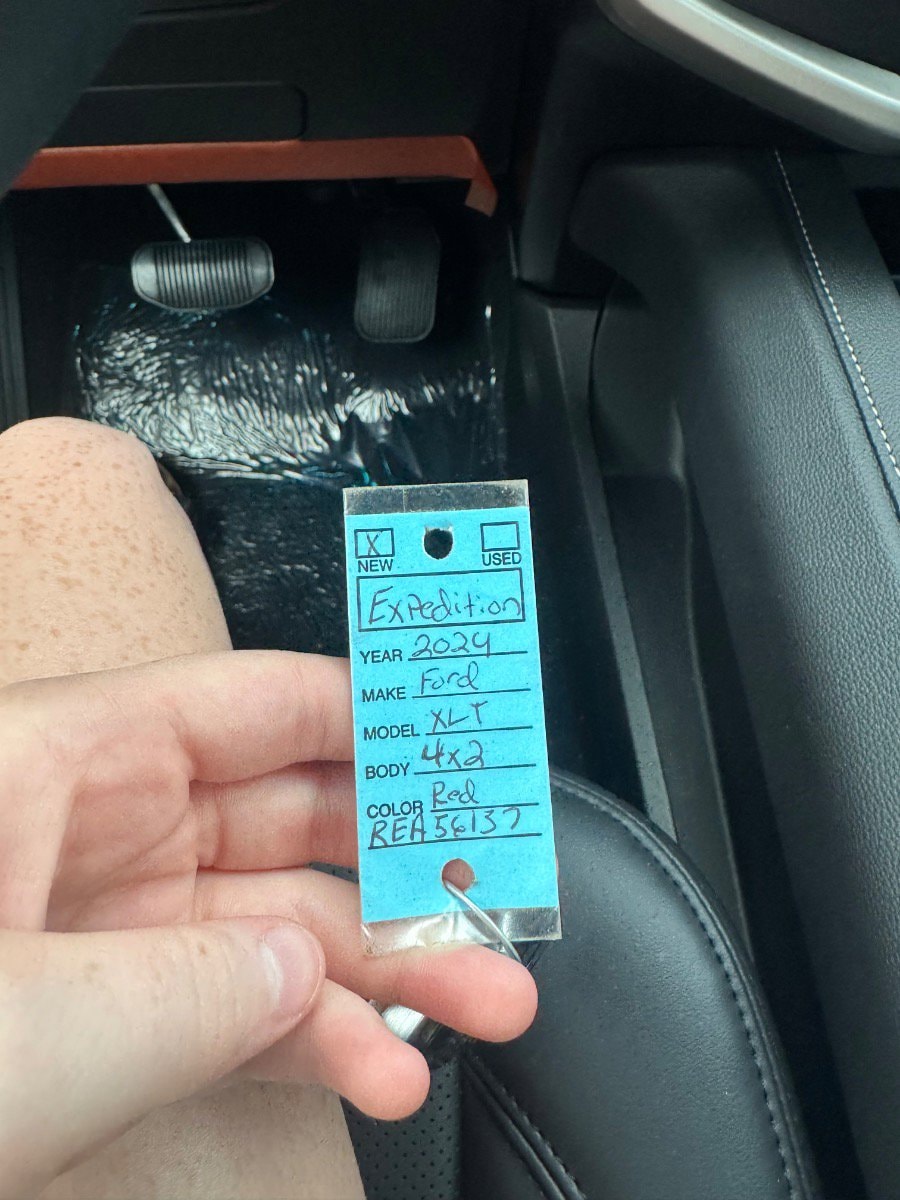 X
NEW USED
Expedition
YEAR 2024
MAKE Ford
MODEL XLT
BODY 4x2
COLOR Red
REA56137